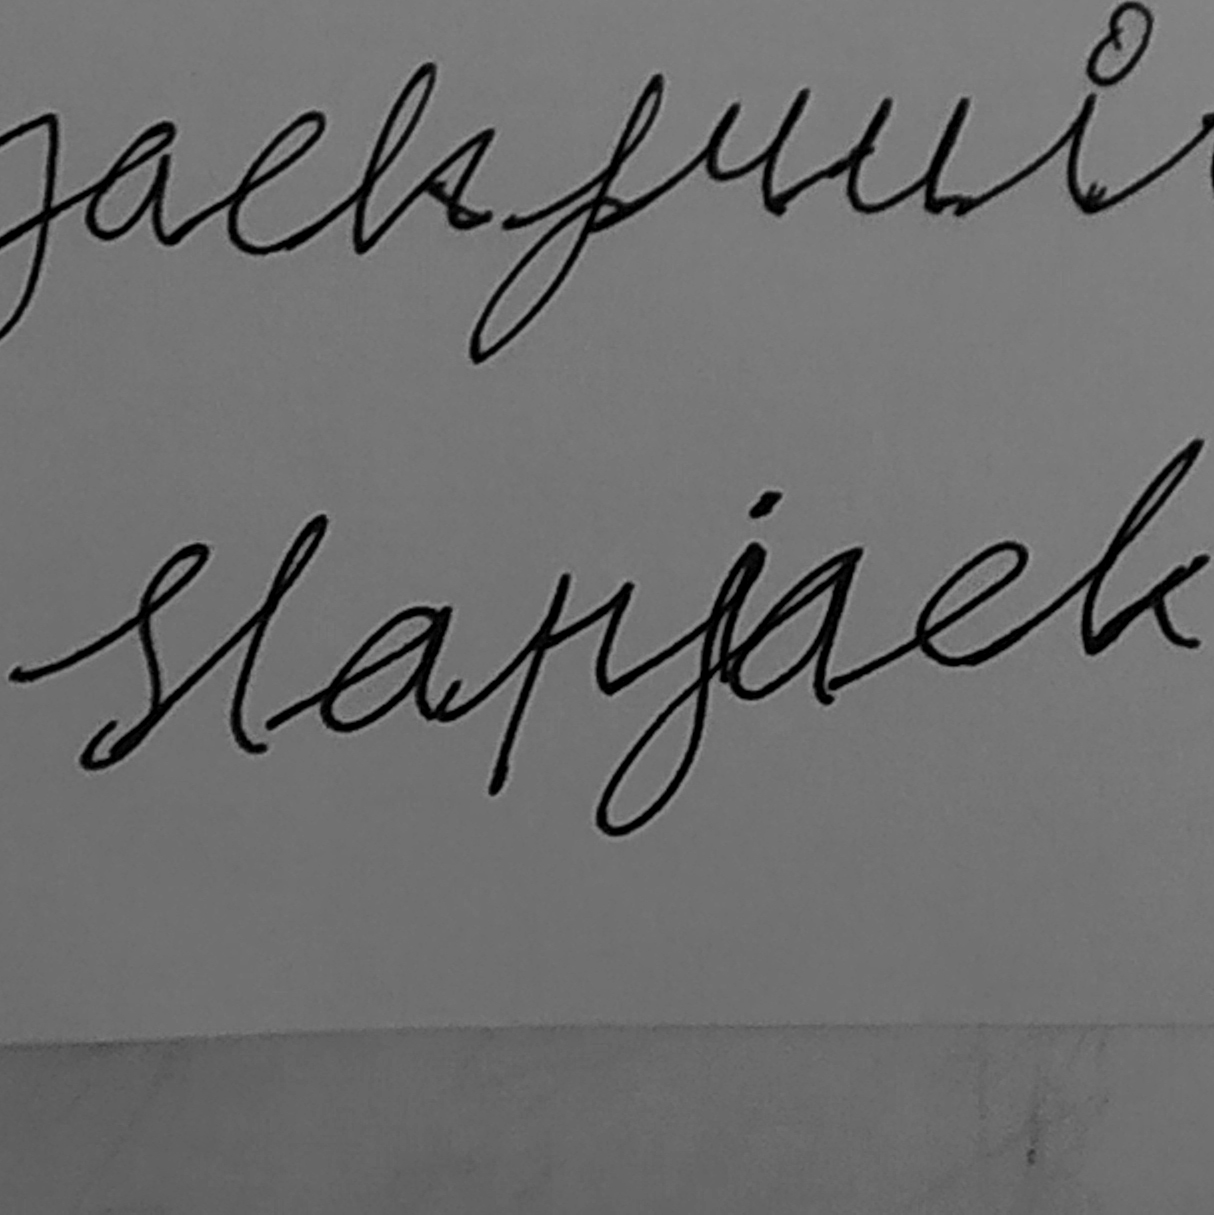 jackfrui
slapjack